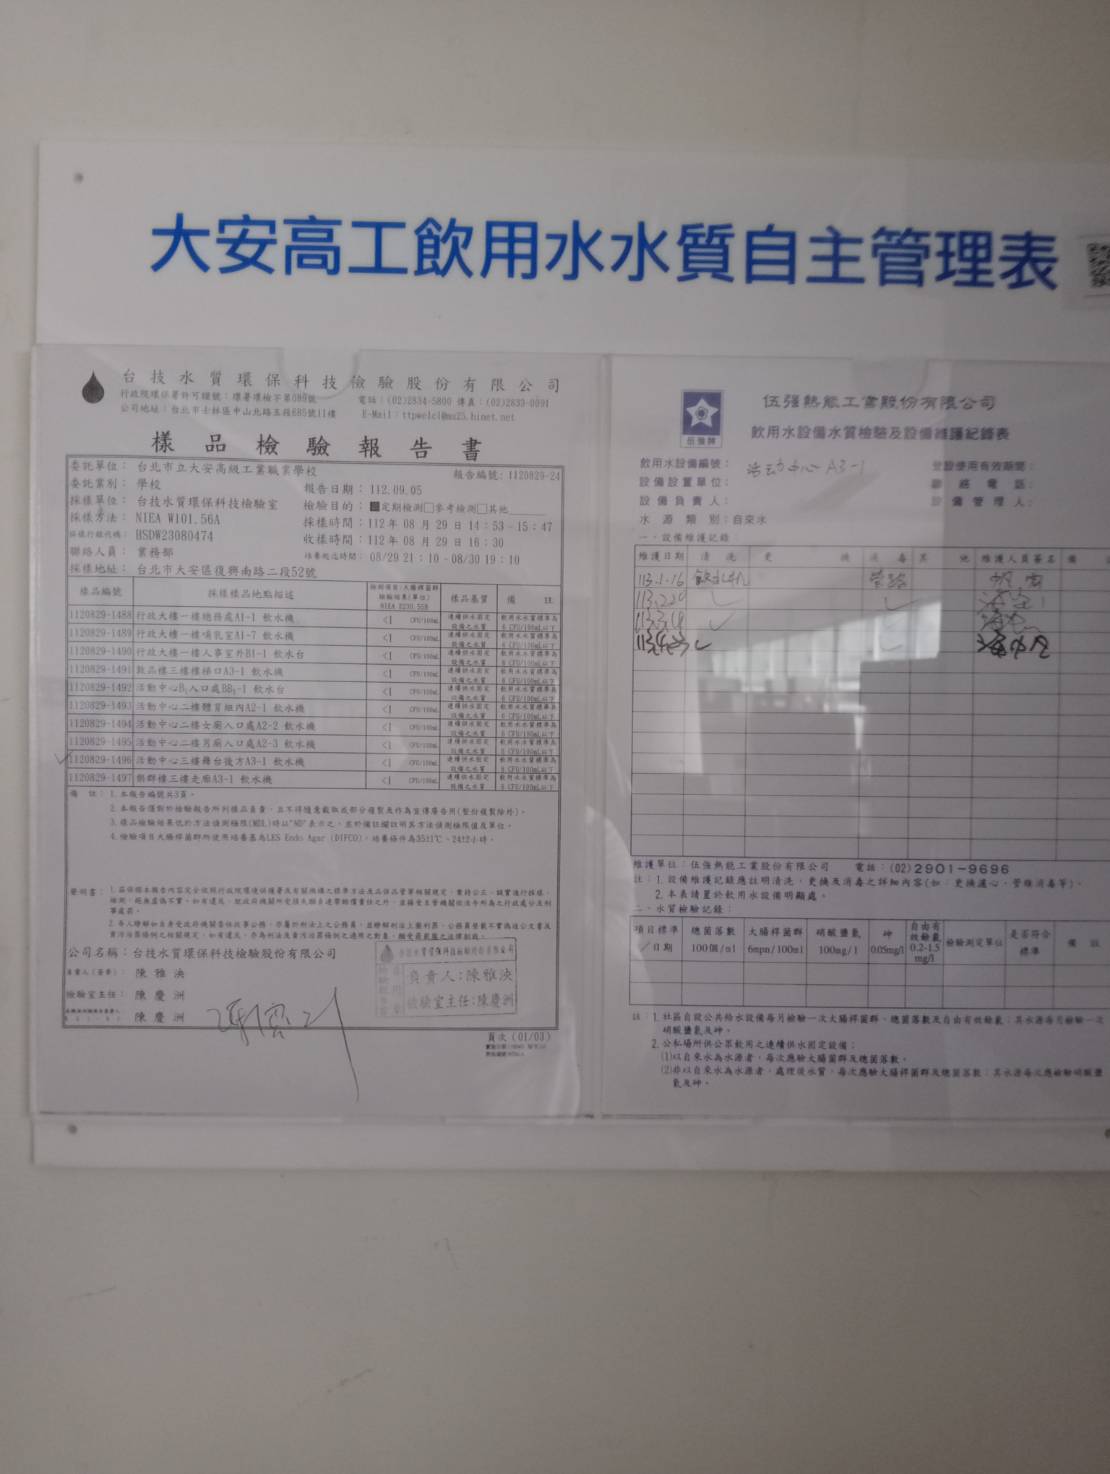 大安高工飲用水水質自主管理表
台技水質環保科技檢驗股份有限公司
行政院環保署許可證號：環署環檢字第089號
電話：(02)2834-5800 傳真：(02)2833-0091
公司地址：台北市士林區中山北路五段685號11樓
E-Mail：ttpwelcl@ms25.hinet.net
樣品檢驗報告書
委託單位：台北市立大安高級工業職業學校
報告編號：1120829-24
委託業別：學校
報告日期：112.09.05
採樣單位：台技水質環保科技檢驗室
檢驗目的：■定期檢測□參考檢測□其他
採樣方法：NIEA W101.56A
採樣時間：112年08月29日14：53-15：47
採樣行程代碼：BSDW23080474
收樣時間：112年08月29日16：30
聯絡人員：業務部
培養起迄時間：08/29 21：10-08/30 19：10
採樣地址：台北市大安區復興南路二段52號
樣品編號 採樣樣品地點描述 樣品基質 備註
1120829-1488 行政大樓一樓總務處A1-1 飲水機 <1 CFU/100mL
1120829-1489 行政大樓一樓哺乳室A1-7 飲水機 <1 CFU/100mL
1120829-1490 行政大樓一樓人事室外B1-1 飲水台 <1 CFU/100mL
1120829-1491 敦品樓三樓樓梯口A3-1 飲水機 <1 CFU/100mL
1120829-1492 活動中心B1入口處BB1-1 飲水台 <1 CFU/100mL
1120829-1493 活動中心二樓體育組內A2-1 飲水機 <1 CFU/100mL
1120829-1494 活動中心二樓女廁入口處A2-2 飲水機 <1 CFU/100mL
1120829-1495 活動中心二樓男廁入口處A2-3 飲水機 <1 CFU/100mL
1120829-1496 活動中心三樓舞台後方A3-1 飲水機 <1 CFU/100mL
1120829-1497 樂群樓三樓走廊A3-1 飲水機 <1 CFU/100mL
備註：1.本報告編號共3頁。
2.本報告僅對於檢驗報告所列樣品負責，且不得隨意截取或部分複製及作為宣傳廣告用(整份複製除外)。
3.樣品檢驗結果低於方法偵測極限(MDL)時以"ND"表示之，並於備註欄註明其方法偵測極限值及單位。
4.檢驗項目大腸桿菌群所使用培養基為LES Endo Agar (DIFCO)，培養條件為35±1℃、24±2小時。
聲明書：
公司名稱：台技水質環保科技檢驗股份有限公司
負責人(簽章)：陳雅泱
檢驗室主任：陳慶洲
陳慶洲
負責人：陳雅泱
檢驗室主任：陳慶洲
頁次(01/03)
伍強牌
伍強熱能工業股份有限公司
飲用水設備水質檢驗及設備維護紀錄表
飲用水設備編號：活动中心 A3-1
登錄使用有效期間：
設備設置單位：
聯絡電話：
設備負責人：
設備管理人：
水源類別：自來水
一、設備維護記錄：
維護日期 清洗 更換 消毒 其他 維護人員簽名 備
113.1.16 飲水机 管路
維護單位：伍強熱能工業股份有限公司 電話：(02)2901-9696
註：1.設備維護記錄應註明清洗、更換及消毒之詳細內容(如：更換濾心、管線消毒等)。
2.本表請置於飲用水設備明顯處。
二、水質檢驗記錄：
項目標準／日期 總菌落數 100個/ml 大腸桿菌群 6mpn/100ml 硝酸鹽氮 10mg/l 砷 0.05mg/l 自由有效餘氯 0.2-1.5 mg/l 檢驗測定單位 是否符合標準 備註
註：1.社區自設公共給水設備每月檢驗一次大腸桿菌群、總菌落數及自由有效餘氯；其水源每月檢驗一次
硝酸鹽氮及砷。
2.公私場所供公眾飲用之連續供水固定設備：
(1)以自來水為水源者，每次應驗大腸桿菌群及總菌落數。
(2)非以自來水為水源者，處理後水質，每次應驗大腸桿菌群及總菌落數；其水源每次應檢驗硝酸鹽
氮及砷。